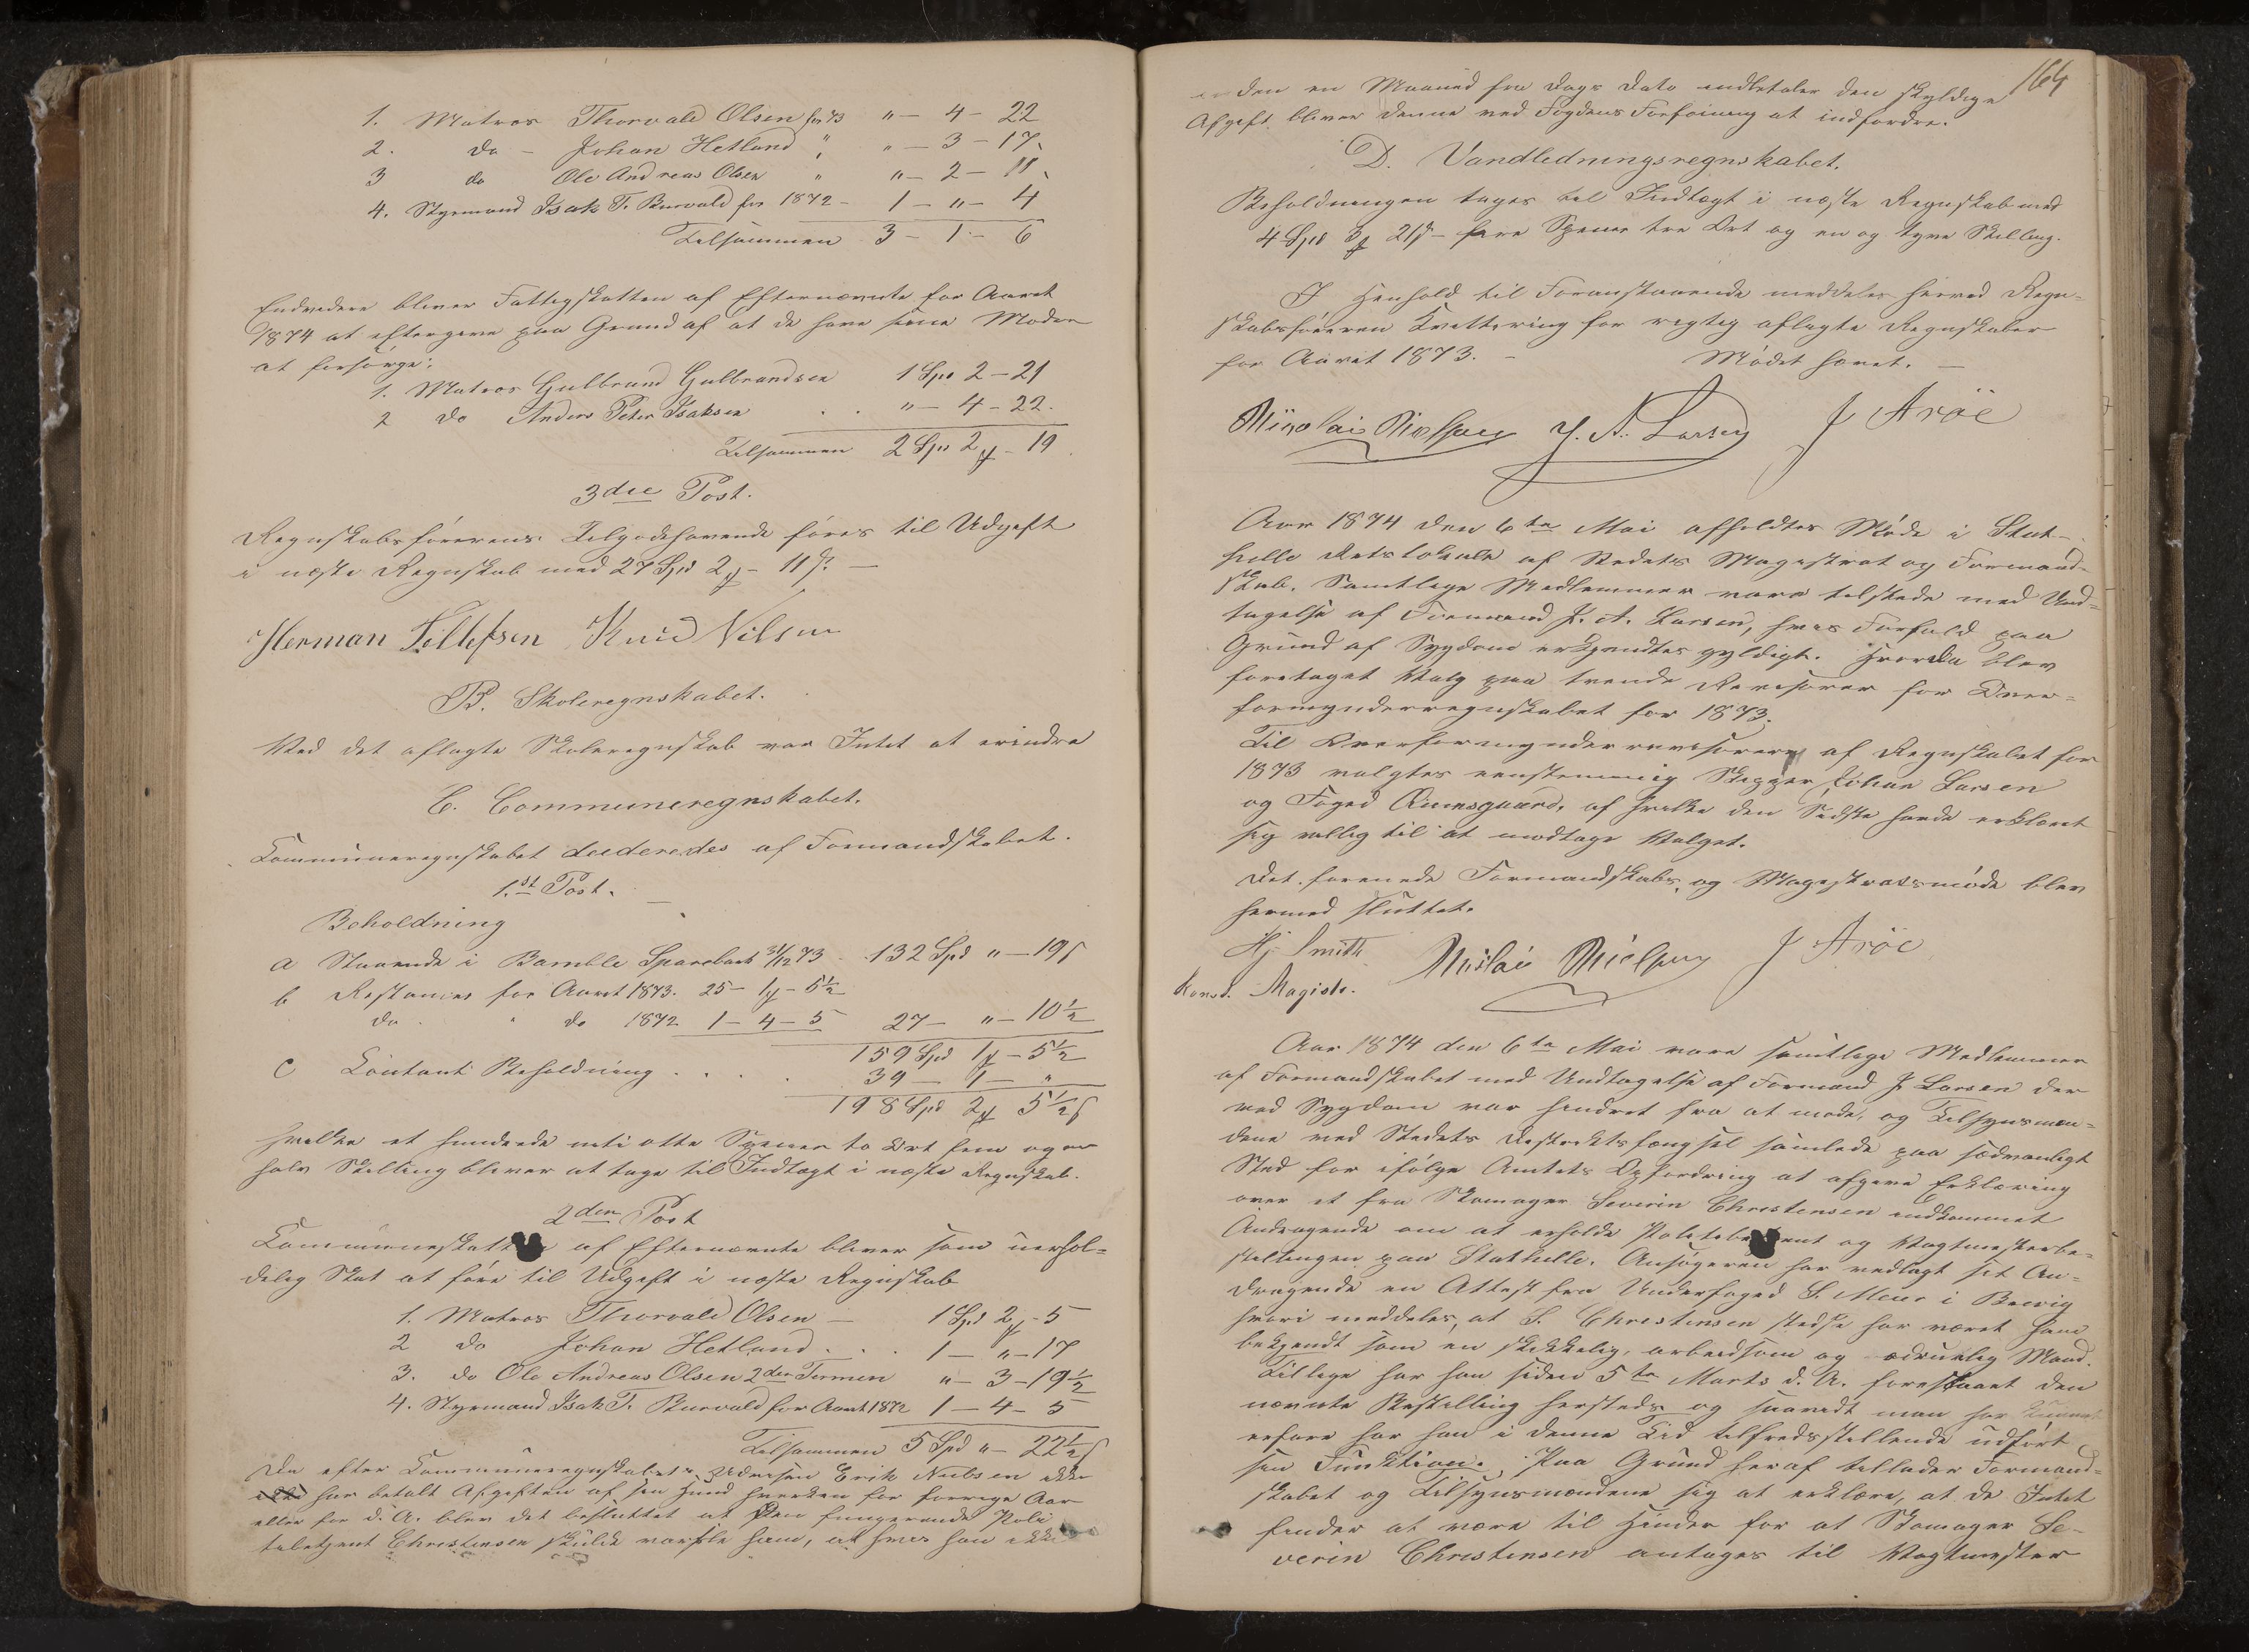 1. Matros Thorvald Olsen for 73 " – 4 – 22
2. do – Johan Hetland " " – 3 – 17
3 do Ole Andreas Olsen " " – 2 – 11
4. Styrmand Isak T. Burvald for 1872 – 1 – " – 4
Tilsammen 3 – 1 – 6
Endvidere bliver Fattigskatten af Efternævnte for Aaret
1874 at eftergive paa Grund af at de have sine Mødre
at forsørge:
1. Matros Gulbrand Gulbrandsen 1 Spd 2 – 21
2 do Anders Peter Isaksen . . " – 4 – 22.
Tilsammen 2 Spd 2 – 19.
3die Post.
Regnskabsførerens Tilgodehavende føres til Udgift
i næste Regnskab med 27 Spd 2 – 11 s. –
Herman Tellefsen Knud Nilsen
B. Skoleregnskabet.
Ved det aflagte Skoleregnskab var Intet at erindre
C. Communeregnskabet.
Kommuneregnskabet decideredes af Formandskabet.
1.st Post.
Beholdning
a Staaende i Bamble Sparebank 31/12 73 . . 132 Spd " – 19 s
b Restancer for Aaret 1873. 25 – 1 – 5½
do " do 1872 1 – 4 – 5 27 – " – 10½
159 Spd 1 – 5½
c Contant Beholdning . . . . 39 – 1 – "
198 Spd 2 5½ s
hvilke et hundrede nitti otte Specier to Ort fem og en
halv Skilling bliver at tage til Indtægt i næste Regnskab.
2den Post
Kommuneskatten af Efternævnte bliver som uerhol-
delig Skat at føre til Udgift i næste Regnskab
1. Matros Thorvald Olsen – 1 Spd 2 – 5
2 do Johan Hetland . . . 1 – " – 17
3. do Ole Andreas Olsen 2den Termin " – 3 – 19½
4. Styrmand Isak T. Burvald for Aaret 1872 1 – 4 – 5
Tilsammen 5 Spd " – 22½ s
Da efter Kommuneregnskabets Udvisen Erik Nielsen ikke
har betalt Afgiften af sin Hund hverken for forrige Aar
eller for d. A. blev det besluttet at den fungerende Poli
tibetjent Christensen skulde varsle ham, at hvis han ikke
164
inden en Maaned fra Dags Dato indbetaler den skyldige
Afgift, bliver denne ved Fogdens Forføining at indfordre.
D. Vandledningsregnskabet.
Beholdningen tages til Indtægt i næste Regnskab med
4 Spd 3 21 s – fire Specier tre Ort og en og tyve Skilling.
I Henhold til Foranstaaende meddeles herved Regn-
skabsføreren Kvittering for rigtig aflagte Regnskaber
for Aaret 1873. – Mødet hævet. –
Nicolai Nielsen J. A. Larsen J Arøe
Aar 1874 den 6te Mai afholdtes Møde i Stat-
helle Retslokale af Stedets Magistrat og Formand-
skab. Samtlige Medlemmer vare tilstede med Und-
tagelse af Formand J. A. Larsen, hvis Forfald paa
Grund af Sygdom erkjendtes gyldigt. Hvorda blev
foretaget Valg paa tvende Revisorer for Over-
formynderregnskabet for 1873.
Til Overformynderrevisorer af Regnskabet for
1873 valgtes eenstemmig Skipper Johan Larsen
og Foged Qvensgaard, af hvilke den Sidste havde erklæret
sig villig til at modtage Valget.
Det forenede Formandskabs og Magistratsmøde blev
hermed sluttet.
Hj Smith Nicolai Nielsen J Arøe
Konst. Magistr.
Aar 1874 den 6te Mai vare samtlige Medlemmer
af Formandskabet med Undtagelse af Formand J. Larsen der
ved Sygdom var hindret fra at møde, og Tilsynsmæn-
dene ved Stedets Distriktsfængsel samlede paa sædvanligt
Sted for ifølge Amtets Opfordring at afgive Erklæring
over et fra Skomager Severin Christensen indkommet
Andragende om at erholde Politibetjent og Vagtmesterbe-
stillingen paa Stathelle. Ansøgeren har vedlagt sit An-
dragende en Attest fra Underfoged S. Meier i Brevig
hvori meddeles, at S. Christensen stedse har været ham
bekjendt som en skikkelig, arbeidsom og ædruelig Mand.
Tillige har han siden 5te Marts d. A. forestaaet den
nævnte Bestilling hersteds og saavidt man har kunnet
erfare har han i denne Tid tilfredsstillende udført
sin Funktion. Paa Grund heraf tillader Formand-
skabet og Tilsynsmændene sig at erklære, at de Intet
finder at være til Hinder for at Skomager Se-
verin Christensen antages til Vagtmester